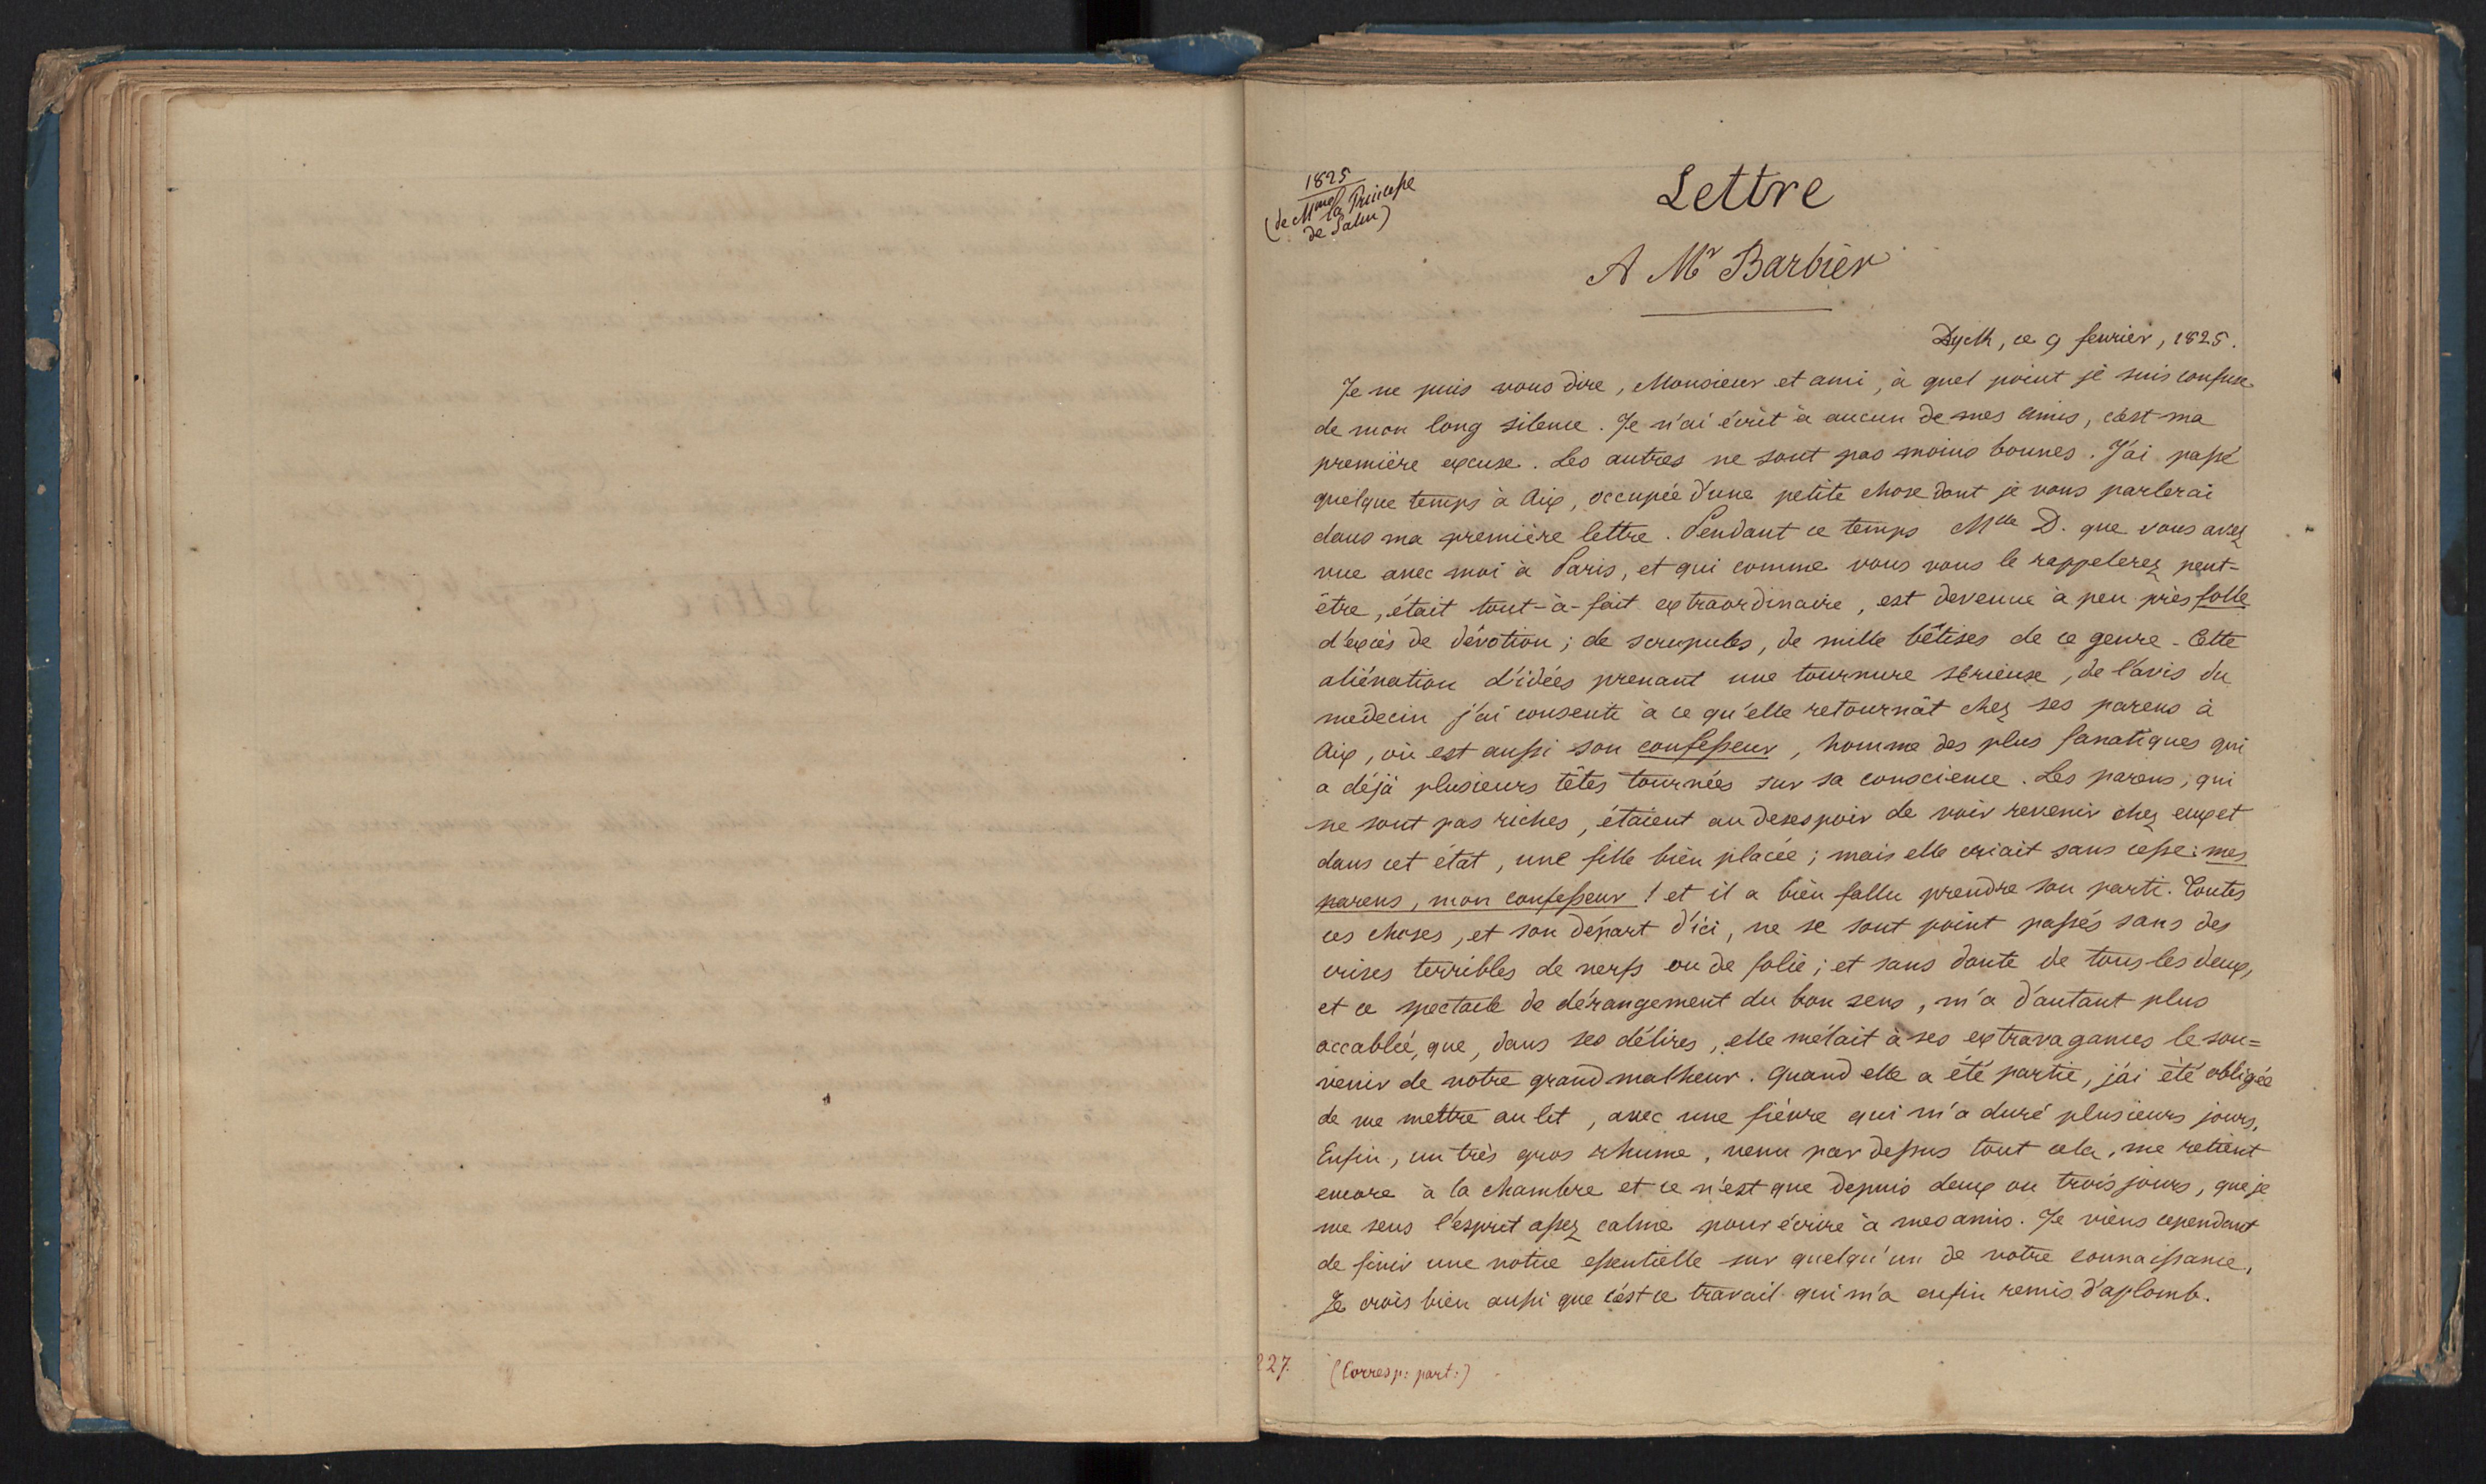 1825
(de Mme la Princesse
de Salm)
Lettre
A Mr Barbier
Dyck, ce 9 fevrier, 1825.
Je ne puis vous dire, Monsieur et ami, à quel point je suis confuse
de mon long silence. Je n'ai écrit à aucun de mes amis, c'est ma
première excuse. Les autres ne sont pas moins bonnes. J'ai passé
quelque temps à Aix, occupée d'une petite chose dont je vous parlerai
dans ma première lettre. Pendant ce temps Mlle D. que vous avez
vue avec moi à Paris, et qui comme vous vous le rappelerez peut-
être, était tout-à-fait extraordinaire, est devenue à peu près folle
d'excès de dévotion; de scrupules, de mille bêtises de ce genre - Cette
aliénation d'idées prenant une tournure sérieuse, de l'avis du
medecin j'ai consenti à ce qu'elle retournât chez ses parens à
Aix, où est aussi son confesseur, homme des plus fanatiques qui
a déjà plusieurs têtes tournées sur sa conscience. Les parens, qui
ne sont pas riches, étaient au desespoir de voir revenir chez eux et
dans cet état, une fille bien placée; mais elle criait sans cesse: mes
parens, mon confesseur! et il a bien fallu prendre son parti. Toutes
ces choses, et son départ d'ici, ne se sont point passés sans des
crises terribles de nerfs ou de folie; et sans doute de tous les deux,
et ce spectacle de dérangement du bon sens, m'a d'autant plus
accablée, que, dans ses délires, elle mêlait à ses extravagances le sou=
venir de notre grand malheur. Quand elle a été partie, j'ai été obligée
de me mettre au lit, avec une fièvre qui m'a duré plusieurs jours,
Enfin, un très gros rhume, venu par dessus tout cela, me retient
encore à la chambre et ce n'est que depuis deux ou trois jours, que je
me sens l'esprit assez calme pour écrire à mes amis. Je viens cependant
de finir une notice essentielle sur quelqu'un de votre connaissance,
Je crois bien aussi que c'est ce travail qui m'a enfin remis d'aplomb.
227. (Corresp: part:)